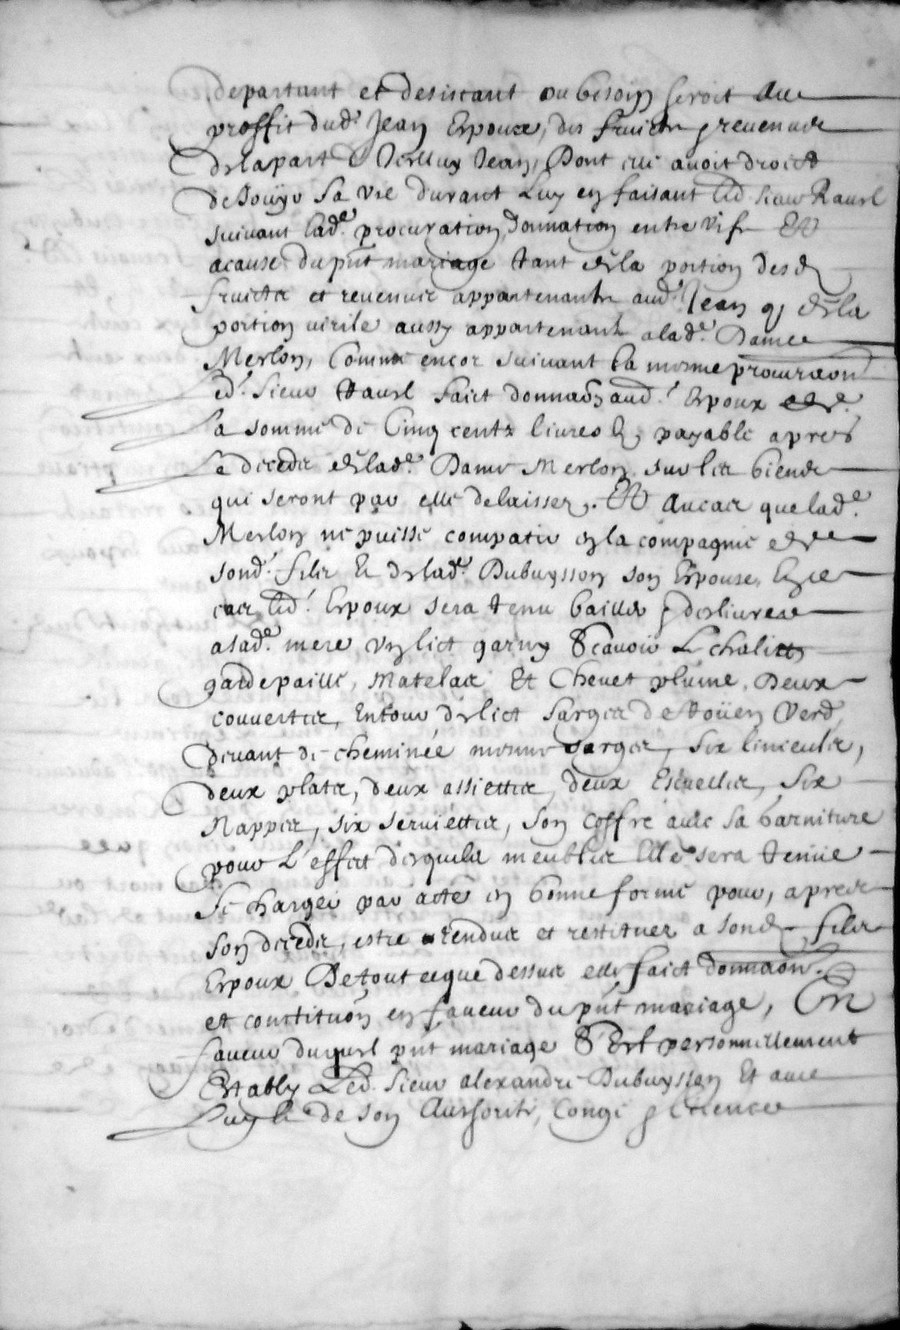 departant et desistant ou besoin seroit au
proffit dud. Jean Espoux, des fruicts & revenus
de la part d'Jcelluy Jean, Dont elle avoit droict
de Jouyr sa vie durant Luy en faisant led. sieur Raurl
suivant lad.e procuration donnation entre vifs Et
a cause du pnt mariage tant de la portion desd.
fruicts et revenus appartenants aud. Jean q de la
portion virile aussy appartenant a lad.e Dame
Merlon, Comme encor suivant la mesme procuraon
led. sieur faict donnaon aud. Espoux de
la somme de Cinq cents livres payable apres
le deceds de lad.e Dame Merlon sur les biens
qui seront par elle delaisses, Et au cas que lad.e
Merlon ne puisse compatir en la compagnie de
sond. fils & de lad.e Dubuysson son Espouse, En ce
cas led. Espoux sera tenu bailler & deslivrer
a sad.e mere un lict garny Scavoir Le chalict
gardepaille, Matelas Et Chevet plume, Deux
couvertes, Entour de lict sarges de Roüen Verd,
devant de cheminée mesme sarges, six linceuls,
deux plats, deux assiettes, deux Escuelles, six
Nappes, six serviettes, son Coffre avec sa garniture
pour L'effect desquels meubles Elle sera tenüe
se charger par acte en bonne forme pour, apres
son deceds, estre rendus et restitues a sond. fils
Espoux De tout ce que dessus est faict donnaon
et constituon en faveur du pnt mariage, En
faveur duquel pnt mariage S'Est personnellement
Estably Led. sieur alexandre Dubuysson Et avec
luy de son Authorité, Congé & licence